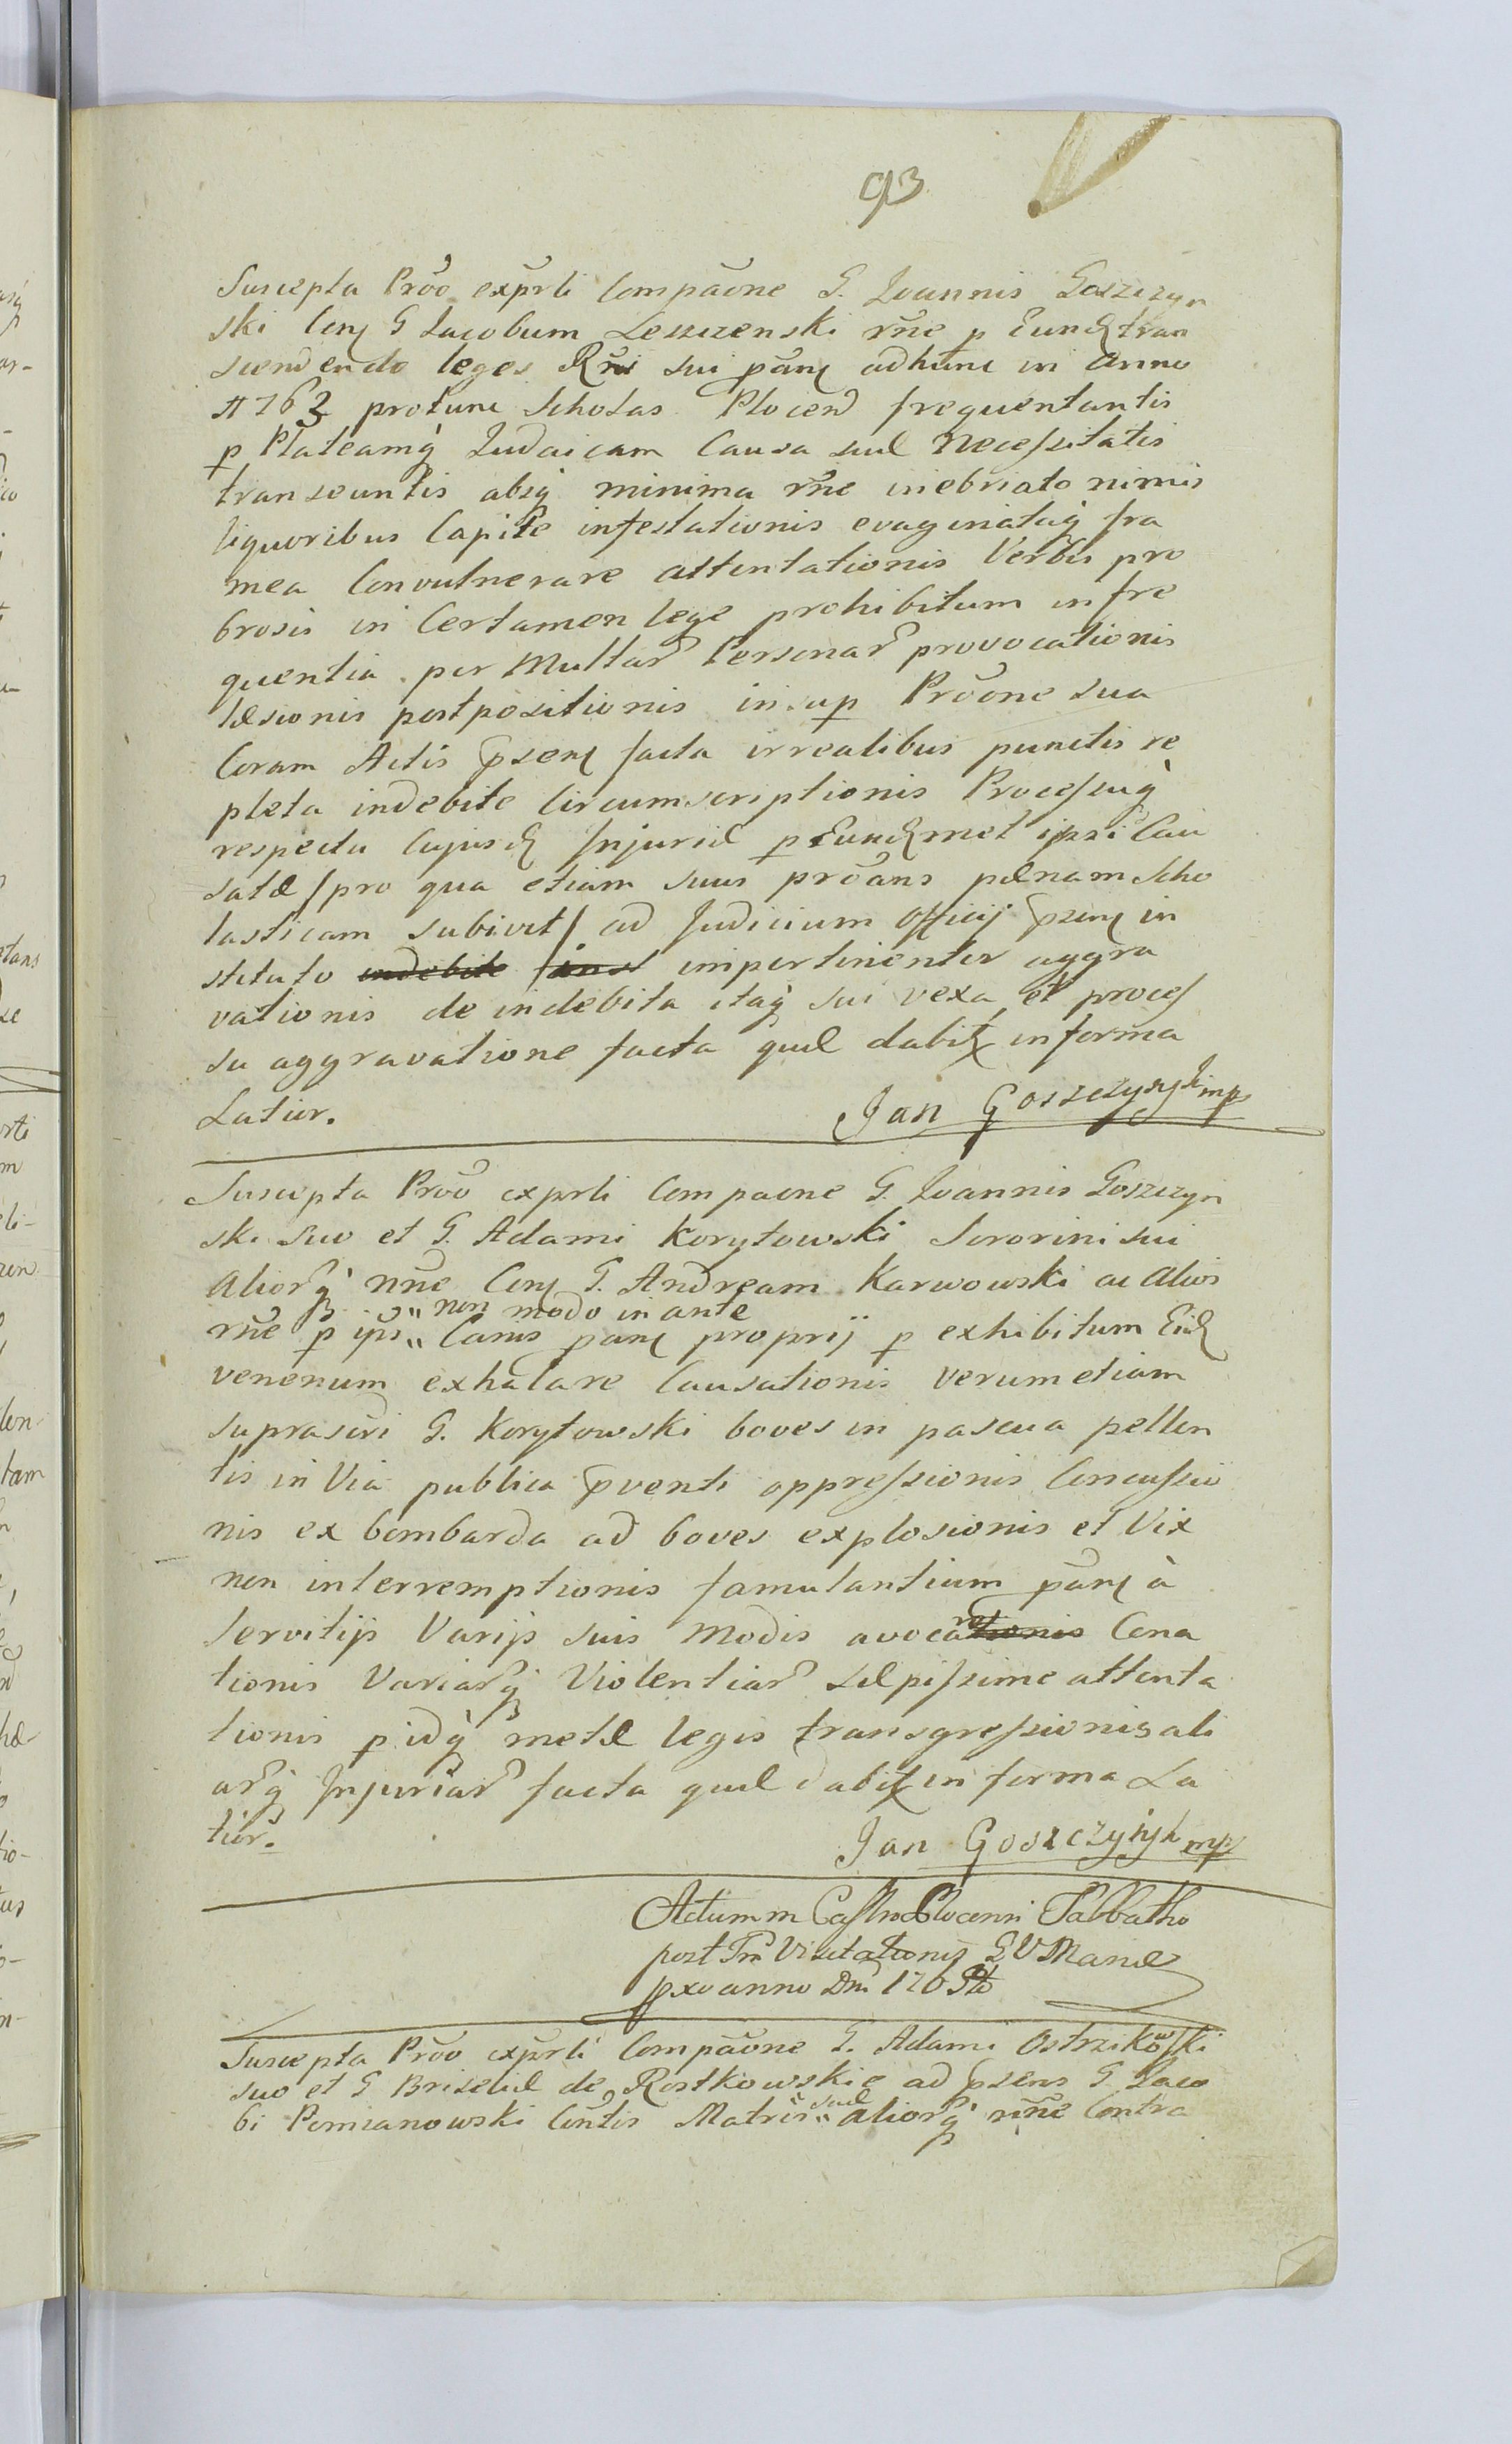 93
Suscepta Prõõ exp̃rti Compãõne G. Joannis Goszczyn
ski Cerę G Jacobum Leszczenski rñe p Eundę tran
scendendo leges Rñi sui pãnę adhunc in Anno
1763 protunc Scholas Plocend frequentantis
p Plateamq̀ Judaicam Causa suæ Necessitatis
transeuntis absq̀ minima rñe inebriato nimis
liquoribus Capite infestationis evaginatàq̀ fra
mea Convulnerare attentationis Verbis pro
brosis in Certamen lege prohibitum in fre
quentia per Multar̃ Personar̃ provocationis
læsionis postpositionis insup Prõõne sua
Coram Actis p̃senę facta irrealibus punctis re
pleta indebite Circumscriptionis Processuq̀
respectu Cujusdę Injuriæ p Eundęmet ipsi Cau
satæ /pro qua etiam suus prõans pænam Scho
lasticam subivit/ ad Judicium Officij p̃senę in
stituto indebite inst impertinenter aggra
vationis de indebita itaq̀ sui vexa et proces
su aggravatione facta quæ dabitę in forma
Latior.
Jan Goszczynski mp
Suscepta Prõõ exprti Compaone G. Joannis Goszczyn
ski suo et G. Adami Korytowski Sororini sui
Alior̃q̀ nñe Cerę G. Andream Karwowski ac Alios
non modo in ante
rñe p ips̃ Canis panę proprij p exhibitum Eidę
venenum exhalare Causationis verum etiam
suprascri G. Korytowski boves in pascua pellen
tis in Via publica p̃venti oppressionis Concussio
nis ex bombarda ad boves explosionis et Vix
non interremptionis famulantium pãnę à
Servitijs Varijs suis Modis avocationis re Cona
tionis Variar̃q̀ Violentiar̃ sæpissime attenta
tionis p idq̀ metæ legis transgressionis ali
ar̃q̀ Injuriar̃ facta quæ dabitę in forma La
tior.
Jan Goszczynski mp
Actum in Castro Plocenni Sabbatho
post Fm Visitationis B V Mariæ
pxo anno Dni 176
Suscepta Prõõ exp̃rti Compãõne G. Adami Ostrzikowski
suo et G Briseidæ de Rostkowskie ad p̃sens G. Jaco
bi Pomianowski Con̄tis Matris suæ alior̃q̀ nñe Contra